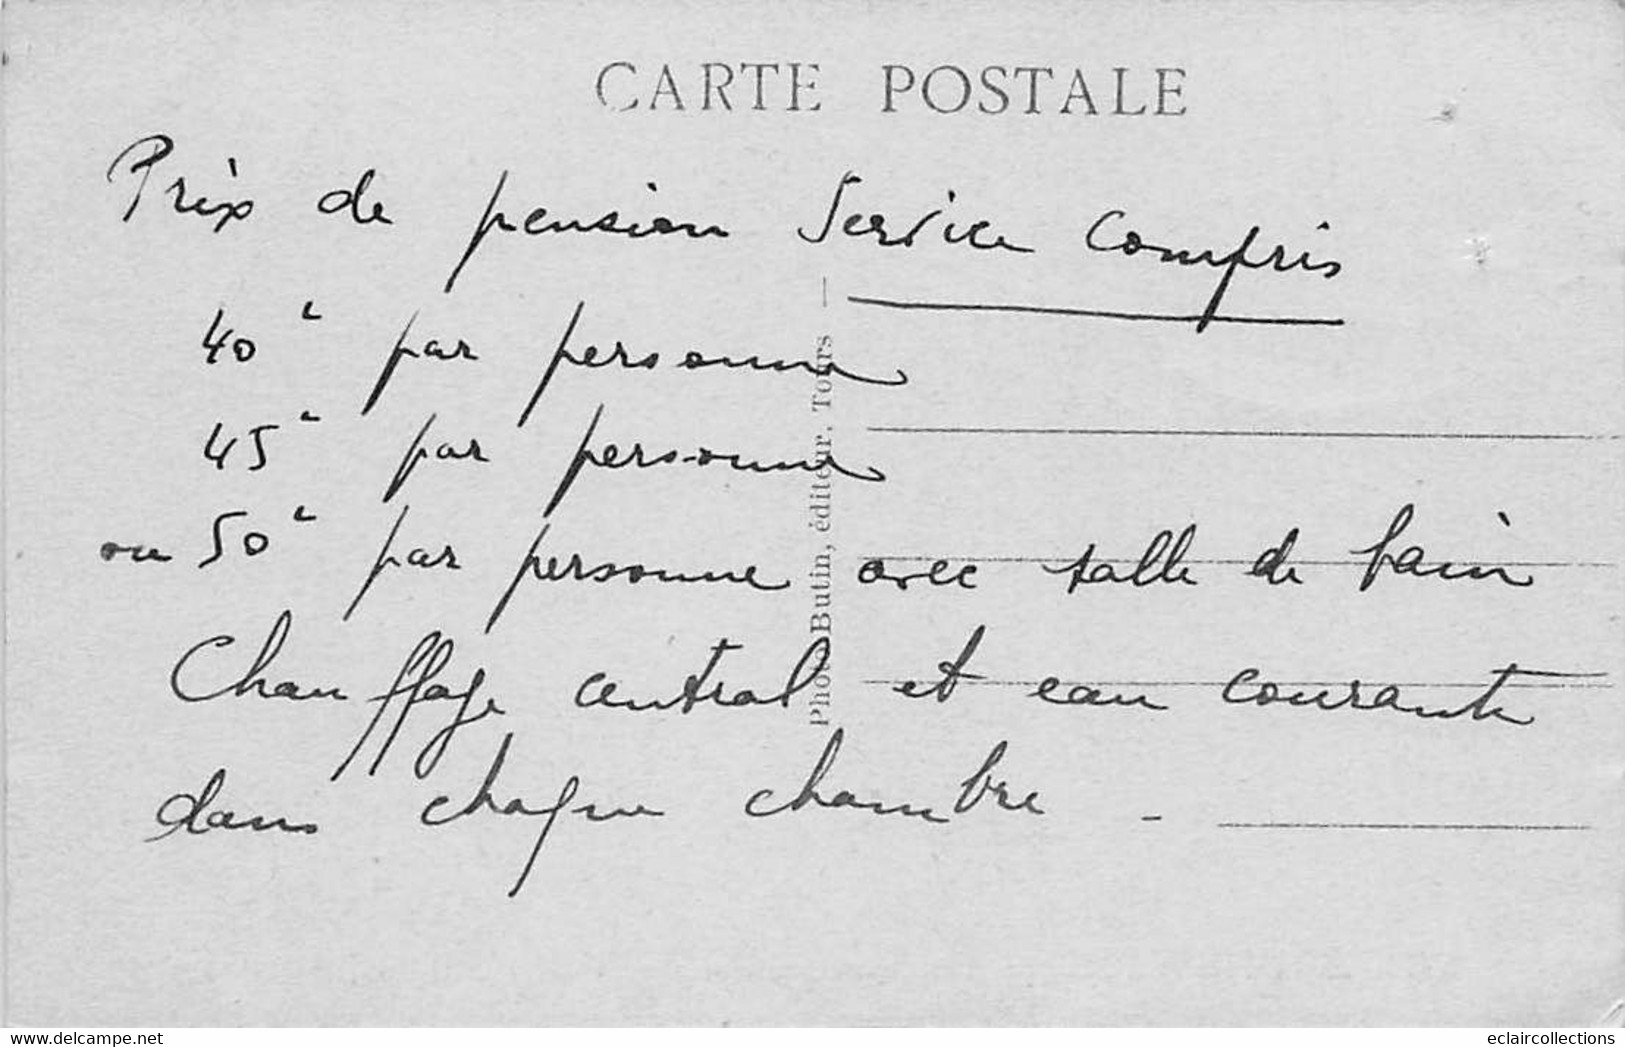 CARTE POSTALE
Prix de pension Service Compris
40 par personne
45 par personne
ou 50 par personne avec salle de bain
Chauffage central et eau courante
dans chaque chambre -
Photo Butin, éditeur, Tours —
www.delcampe.net
eclaircollections